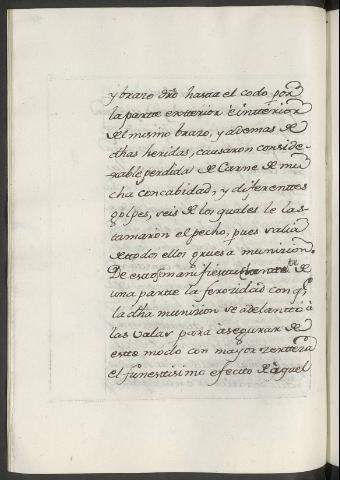 y brazo dro hasta el codo por
la parte exterior é interior
del mismo brazo, y ademas de
dhas heridas, causaron conside-
rable perdida de Carne de mu
cha concabidad, y diferentes
golpes, seis de los quales le las-
tamaron el pecho, pues valia
de todos ellos gruesa munision.
De esto se manifiesta de
una parte la ferozidad con qe
la dha munision se adelantó à
las valas para asegurar de
este modo con mayor zerteza
el funestisimo efecto de aquel